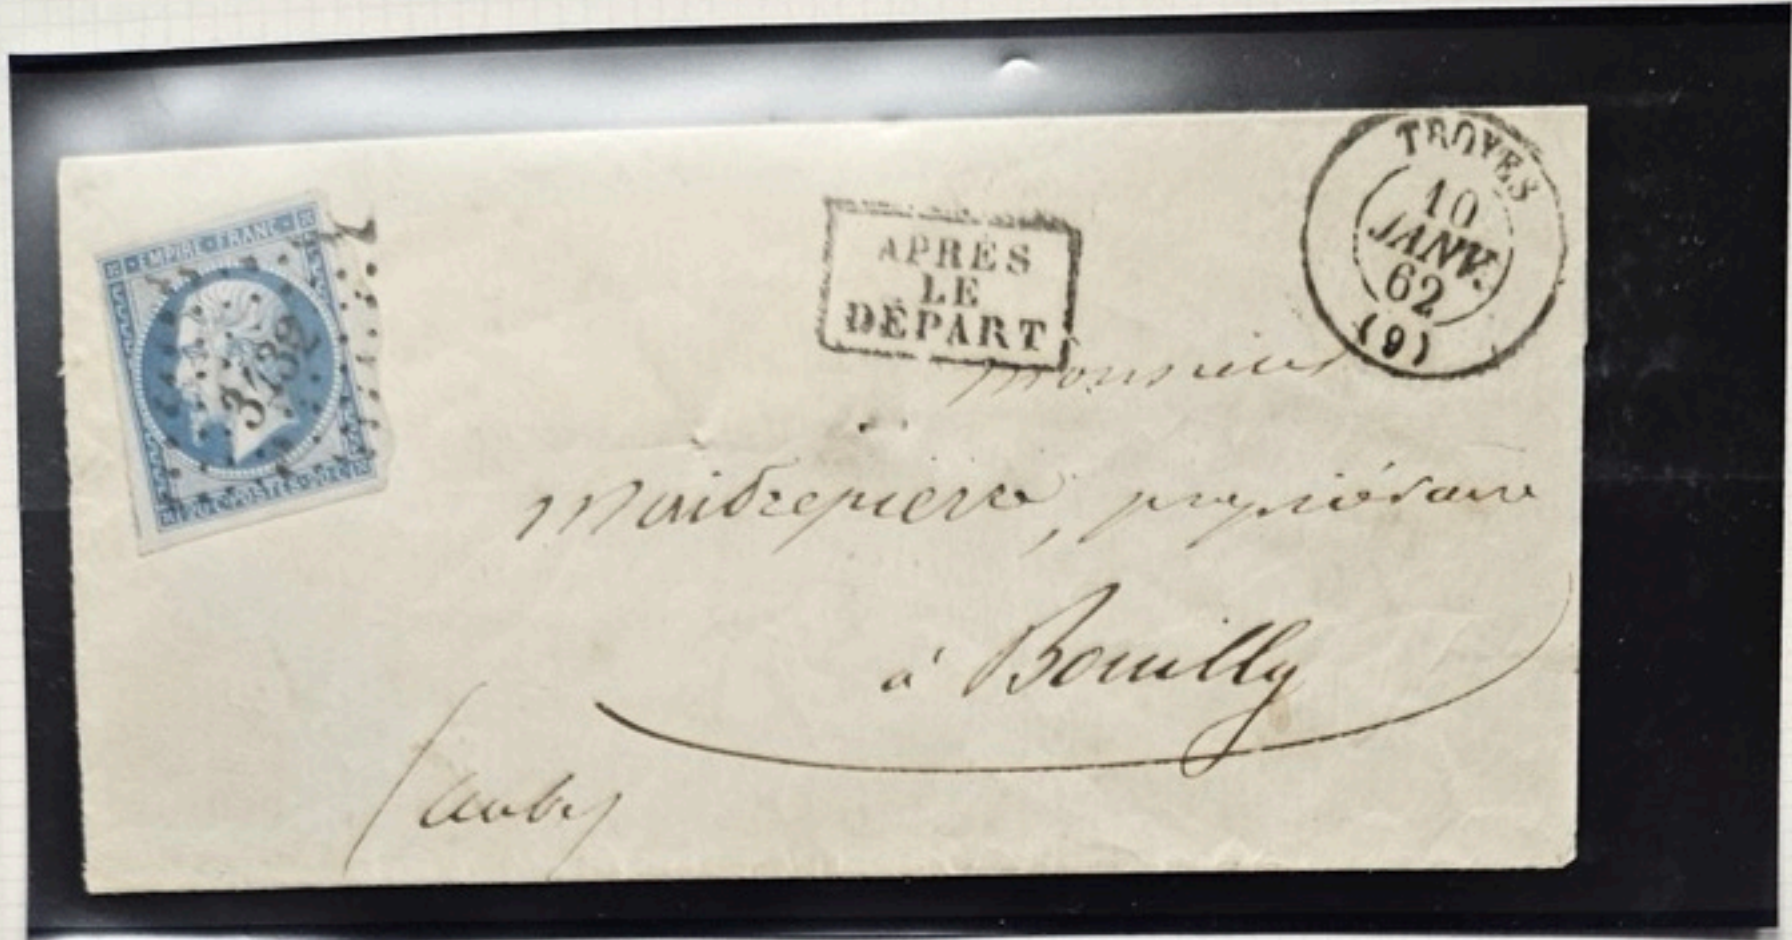 EMPIRE·FRANC·
3732
20 C·POSTES·20 C
APRÈS
LE
DÉPART
TROYES
10
JANV.
62
(9)
Monsieur
Maitrepierre, propriétaire
à Bouilly
(aube)